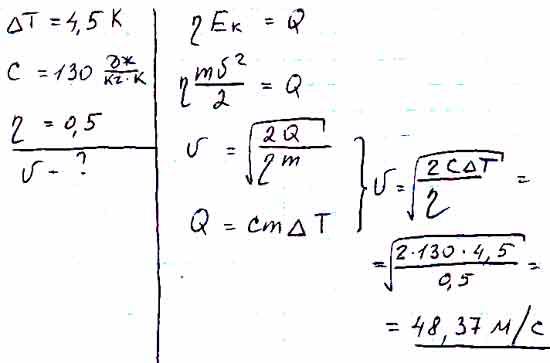 ΔT = 4,5 К
C = 130 Дж/кг·К
η = 0,5
υ - ?
η Eк = Q
η mυ²/2 = Q
υ = √(2Q/ηm)
Q = cmΔT
υ = √(2CΔT/η) =
= √(2·130·4,5/0,5) =
= 48,37 м/с